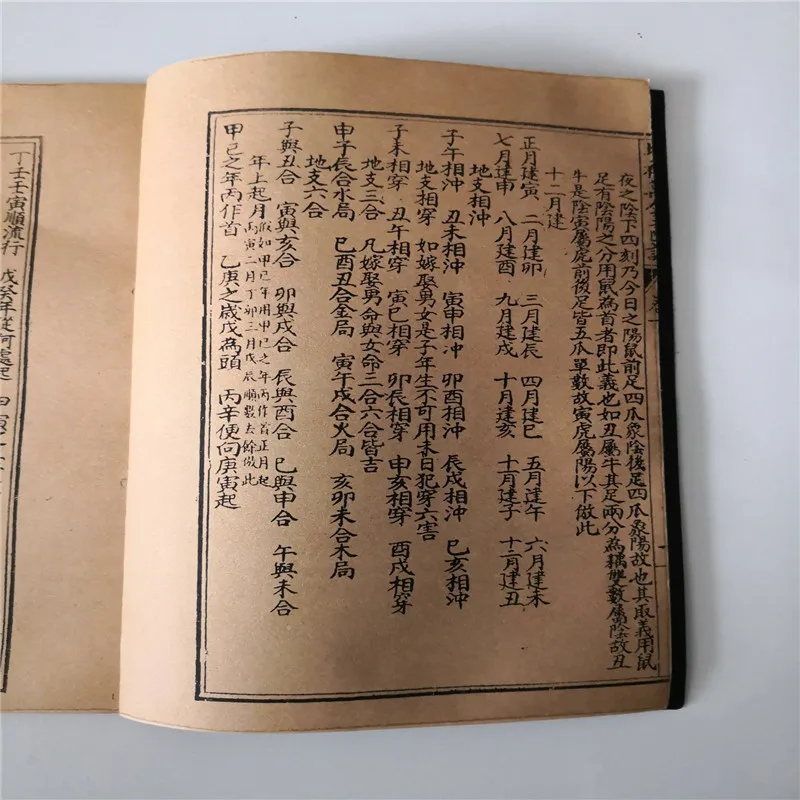 夜之陰下四刻乃今日之陽鼠前足四爪象陰後足四爪象陽故也其取義用鼠
足有陰陽之分用鼠為首者即此義也如丑屬牛其足兩分為耦雙數屬陰故丑
牛是陰寅屬虎前後足皆五爪單數故寅虎屬陽以下倣此
十二月建
正月建寅 二月建卯 三月建辰 四月建巳 五月建午 六月建未
七月建申 八月建酉 九月建戌 十月建亥 十一月建子 十二月建丑
地支相沖
子午相沖 丑未相沖 寅申相冲 卯酉相沖 辰戌相沖 巳亥相沖
地支相穿 如嫁娶男女是子年生不可用未日犯穿六害
子未相穿 丑午相穿 寅巳相穿 卯辰相穿 申亥相穿 酉戌相穿
地支三合 凡嫁娶男命與女命三合六合皆吉
申子辰合水局 巳酉丑合金局 寅午戌合火局 亥卯未合木局
地支六合
子與丑合 寅與亥合 卯與戌合 辰與酉合 巳與申合 午與未合
年上起月 假如甲巳年用甲巳之年丙作首正月起
丙寅二月丁卯三月戊辰順數去餘倣此
甲巳之年丙作首 乙庚之歲戊為頭 丙辛便向庚寅起
丁壬壬寅順流行 戊癸年從何處起